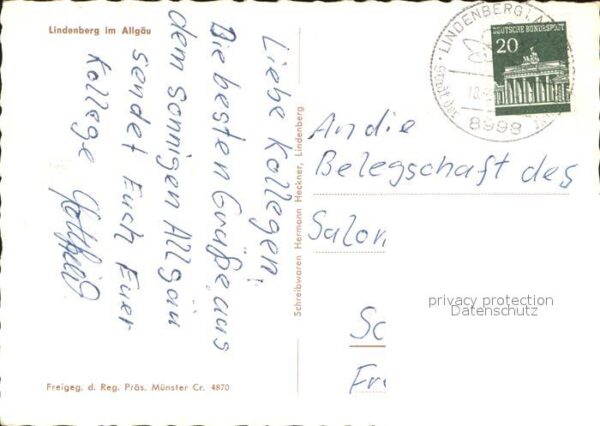 Lindenberg im Allgäu
Liebe Kollegen,
Die besten Grüße aus
dem sonnigen Allgäu
sendet Euch Euer
Kollege
Freigeg. d. Reg. Präs. Münster Cr. 4870
Schreibwaren Hermann Heckner, Lindenberg
LINDENBERG I. A
8998
DEUTSCHE BUNDESPOST
20
An die
Belegschaft des
Salon
Sc
Fr
privacy protection
Datenschutz